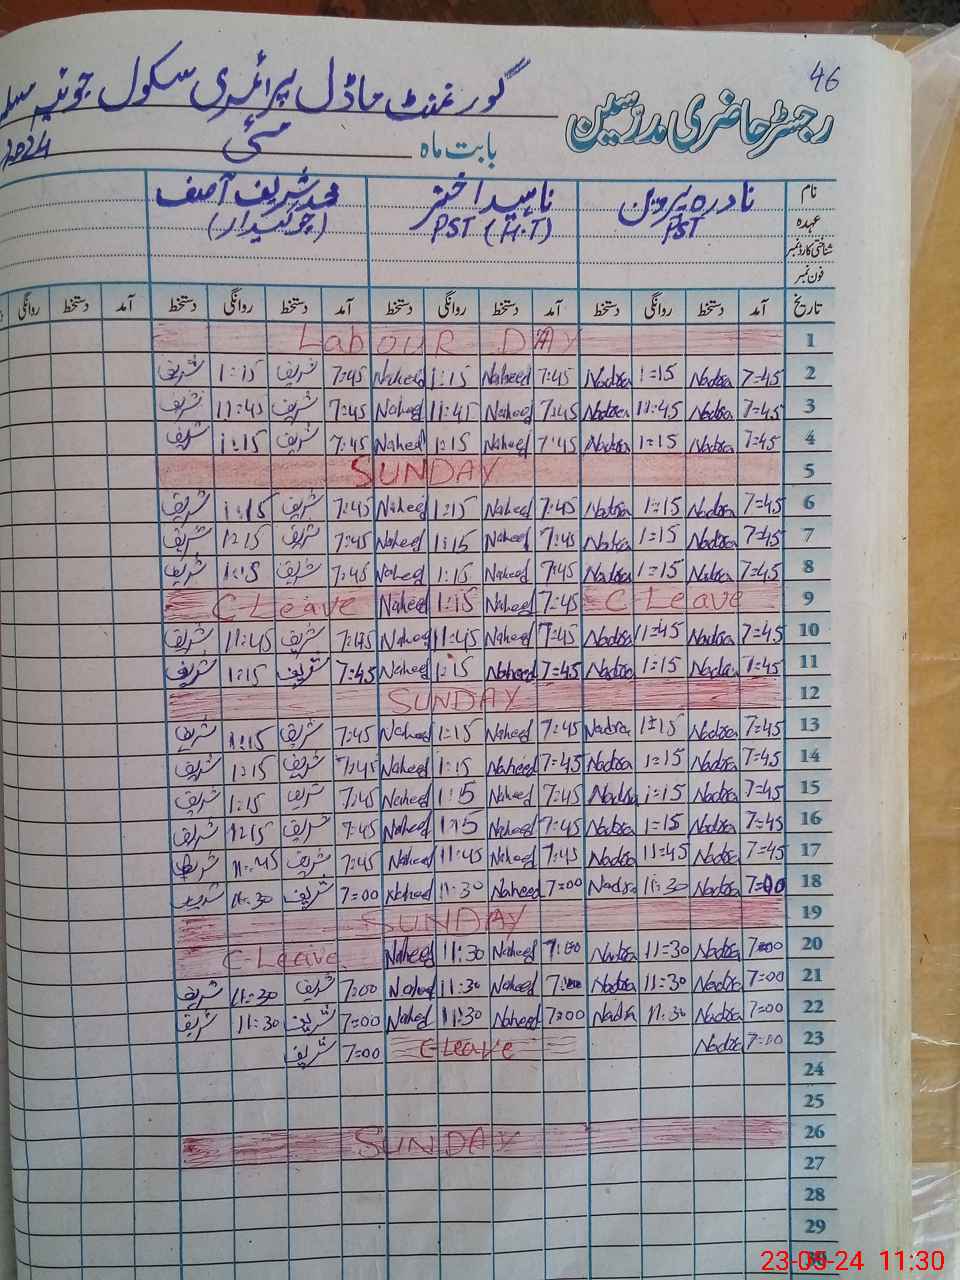 46
رجسٹر حاضری مدرسین
گورنمنٹ ماڈل پرائمری سکول جونیہ
بابت ماہ مئی 2024
نام نادرہ پروین ناہید اختر محمد شریف آصف
عہدہ PST PST (H.T) (چوکیدار)
شناختی کارڈ نمبر
فون نمبر
تاریخ آمد دستخط روانگی دستخط آمد دستخط روانگی دستخط آمد دستخط روانگی دستخط آمد دستخط روانگی
1 Labour DAY
2 7=45 Nadra 1=15 Nadra 7:45 Naheed 1:15 Naheed 7:45 شریف 1:15 شریف
3 7=45 Nadra 11=45 Nadra 7:45 Naheed 11:45 Naheed 7:45 شریف 11:45 شریف
4 7=45 Nadra 1=15 Nadra 7:45 Naheed 1:15 Naheed 7:45 شریف 1:15 شریف
5 SUNDAY
6 7=45 Nadra 1=15 Nadra 7:45 Naheed 1:15 Naheed 7:45 شریف 1:15 شریف
7 7=45 Nadra 1=15 Nadra 7:45 Naheed 1:15 Naheed 7:45 شریف 1:15 شریف
8 7=45 Nadra 1=15 Nadra 7:45 Naheed 1:15 Naheed 7:45 شریف 1:15 شریف
9 C-Leave 7:45 Naheed 1:15 Naheed C-Leave
10 7=45 Nadra 11=45 Nadra 7:45 Naheed 11:45 Naheed 7:45 شریف 11:45 شریف
11 7=45 Nadra 1=15 Nadra 7=45 Naheed 1:15 Naheed 7:45 شریف 1:15 شریف
12 SUNDAY
13 7=45 Nadra 1=15 Nadra 7:45 Naheed 1:15 Naheed 7:45 شریف 1:15 شریف
14 7=45 Nadra 1=15 Nadra 7=45 Naheed 1:15 Naheed 7:45 شریف 1:15 شریف
15 7=45 Nadra 1=15 Nadra 7:45 Naheed 1:5 Naheed 7:45 شریف 1:15 شریف
16 7=45 Nadra 1=15 Nadra 7:45 Naheed 1:15 Naheed 7:45 شریف 1:15 شریف
17 7=45 Nadra 11=45 Nadra 7:45 Naheed 11:45 Naheed 7:45 شریف 11:45 شریف
18 7=00 Nadra 11=30 Nadra 7=00 Naheed 11:30 Naheed 7=00 شریف 11:30 شریف
19 SUNDAY
20 7=00 Nadra 11=30 Nadra 7:00 Naheed 11:30 Naheed C-Leave
21 7=00 Nadra 11=30 Nadra 7:00 Naheed 11:30 Naheed 7:00 شریف 11:30 شریف
22 7=00 Nadra 11:30 Nadra 7=00 Naheed 11:30 Naheed 7=00 شریف 11:30 شریف
23 7=00 Nadra C-Leave 7=00 شریف
24
25
26 SUNDAY
27
28
29
30
23-05-24 11:30